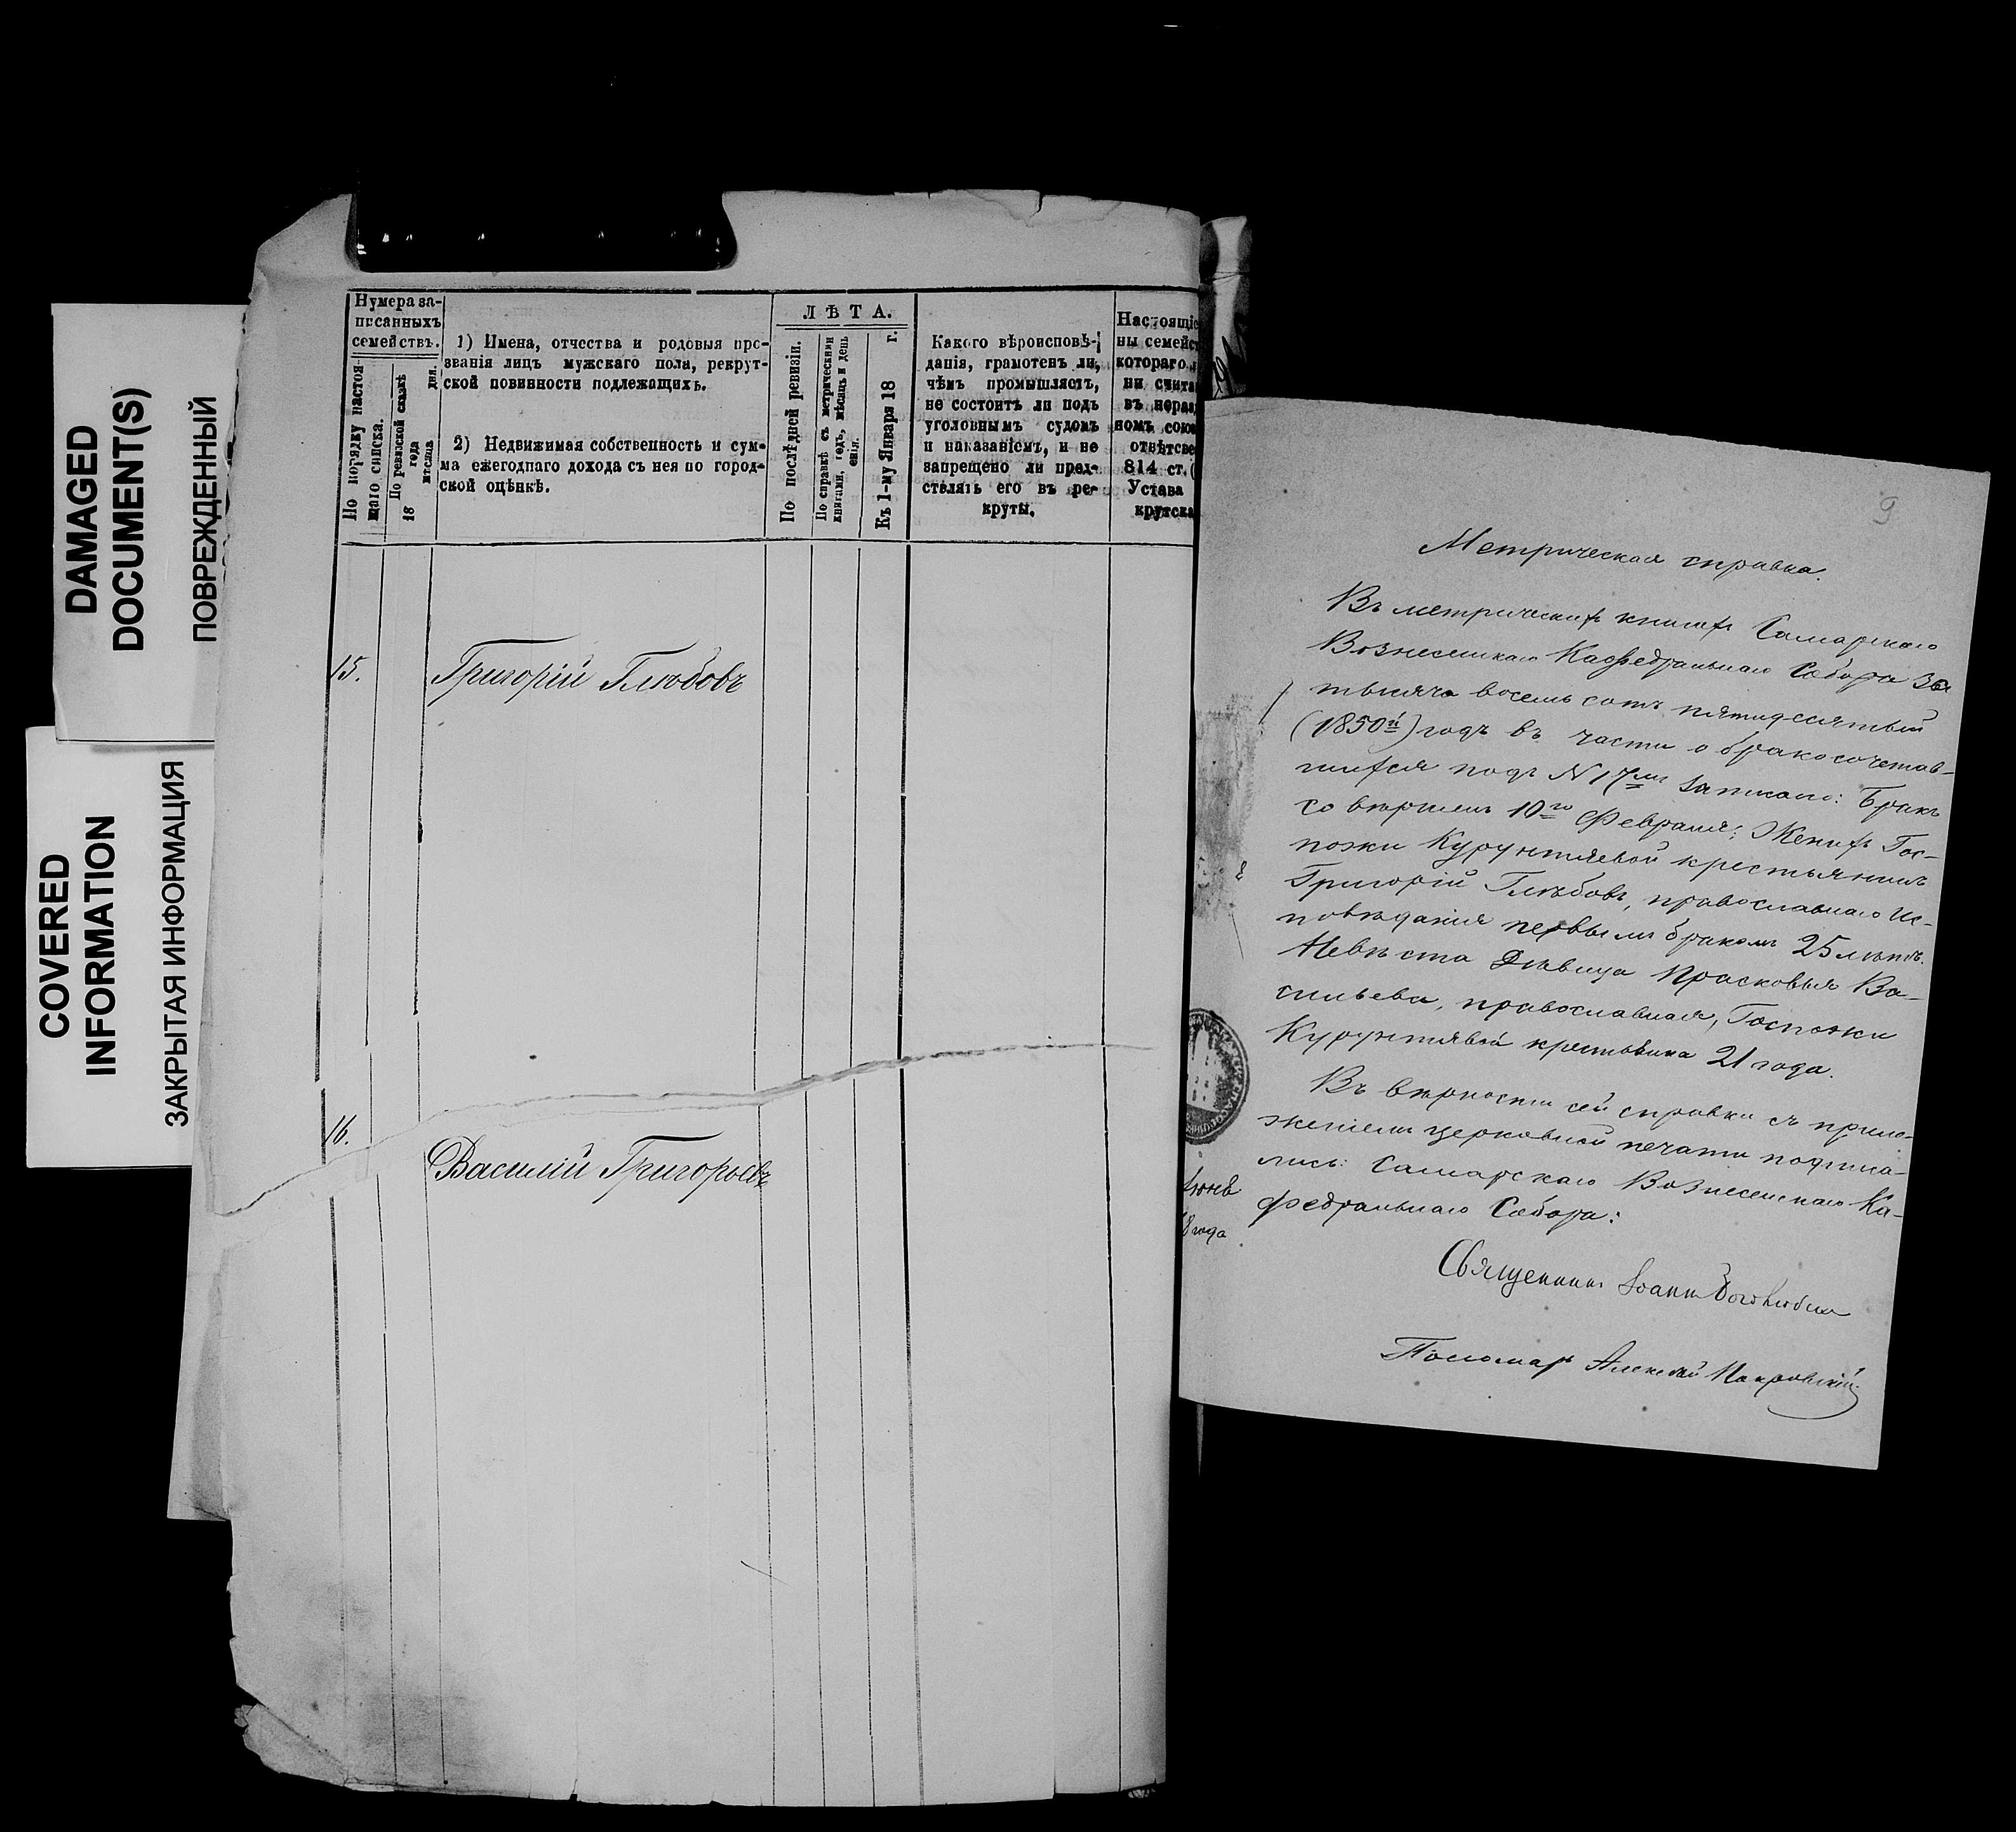 DAMAGED
DOCUMENT(S)
ПОВРЕЖДЕННЫЙ
COVERED
INFORMATION
ЗАКРЫТАЯ ИНФОРМАЦИЯ
Нумера за-
писанныхъ
семействъ.
По порядку настоя-
щаго списка.
По ревизской сказкѣ
18 года
мѣсяца дня.
1) Имена, отчества и родовыя про-
званія лицъ мужскаго пола, рекрут-
ской повинности подлежащихъ.
2) Недвижимая собственность и сум-
ма ежегоднаго дохода съ нея по город-
ской оцѣнкѣ.
ЛѢТА.
По послѣдней ревизіи.
По справкѣ съ метрическими
книгами, годъ, мѣсяцъ и день
Къ 1-му Января 18 г.
Какого вѣроисповѣ-
данія, грамотенъ ли,
чѣмъ промышляетъ,
не состоитъ ли подъ
уголовнымъ судомъ
и наказаніемъ, и не
запрещено ли пред-
ставлять его въ ре-
круты.
Настоящіе
ны семейст
котораго
ни счита
въ нераз
номъ союз
отвѣтстве
814 ст. (
Устава
крутска
15.
Григорій Глѣбовъ
16.
Василій Григорьевъ
9
Метрическая справка.
Въ метрической книгѣ Самарскаго
Вознесенскаго Кафедральнаго Собора за
тысяча восемь сотъ пятидесятый
(1850й) годъ въ части о бракосочетав-
шихся подъ N 17мъ записано: Бракъ
совершенъ 10го Февраля; Женихъ Гос-
пожи Курунтяевой крестьянинъ
Григорій Глѣбовъ, православнаго ис-
повѣданія первымъ бракомъ 25 лѣтъ.
Невѣста дѣвица Прасковья Ва-
сильева, православная, Госпожи
Курунтяевой крестьянка 21 года.
Въ вѣрности сей справки съ прило-
женіемъ церковной печати подписа-
лись: Самарскаго Вознесенскаго Ка-
федральнаго Собора:
Іюня
8 года
Священникъ Іоаннъ Боголюбовъ
Пономарь Алексѣй Покровскій